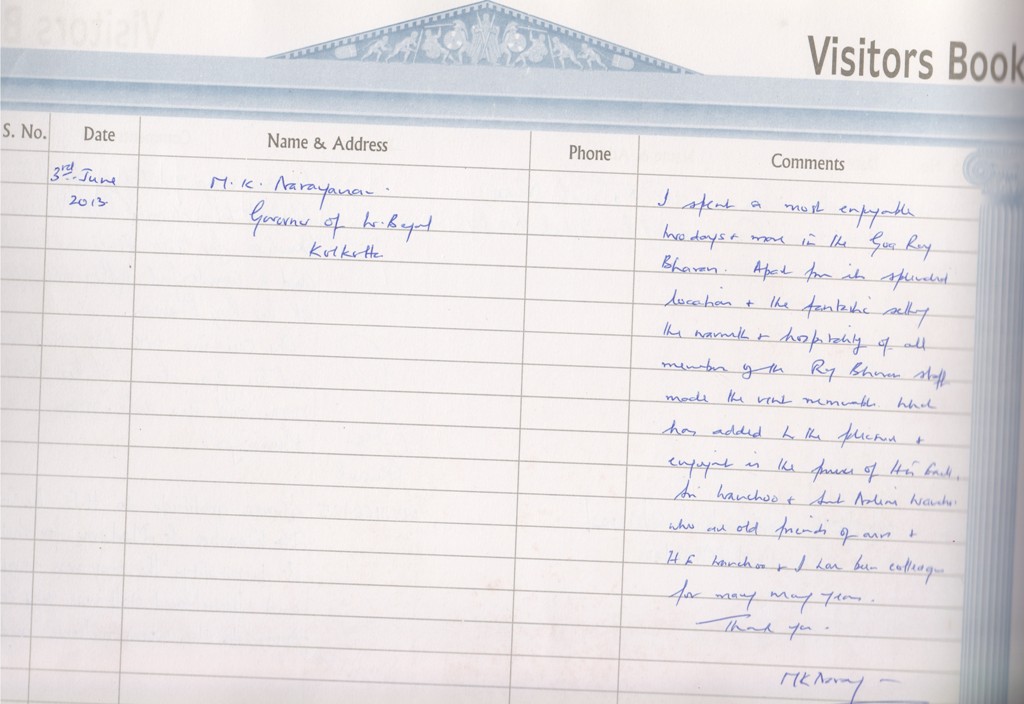 Visitors Book
S. No.
Date
Name & Address
Phone
Comments
3rd June
2013
M. K. Narayanan.
Governor of W. Bengal
Kolkatta
I spent a most enjoyable
two days + more in the Goa Raj
Bhavan. Apart from its splendid
location + the fantastic setting
the warmth + hospitality of all
members of the Raj Bhavan staff
made the visit memorable. What
has added to the pleasure +
enjoyment is the presence of
Sri Wanchoo + Smt Wanchoo
who are old friends of ours +
H E Wanchoo + I have been colleagues
for many many years.
Thank you.
MK Naray